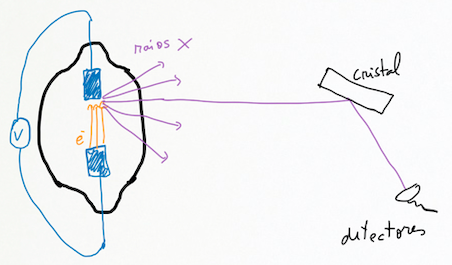 raios X
cristal
V
e⁻
detectores